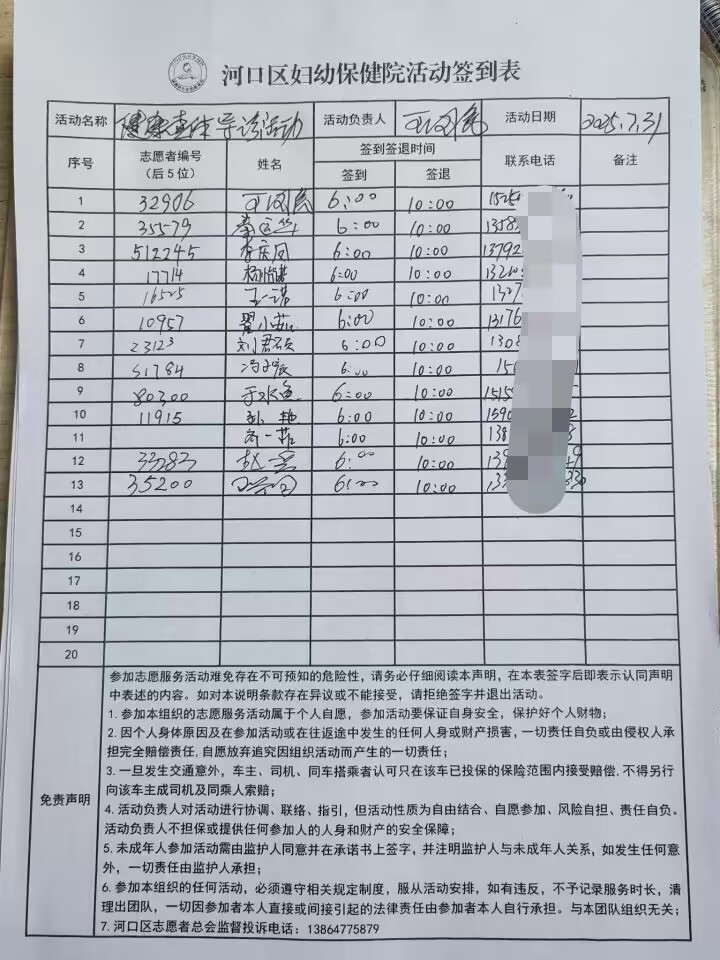 河口区妇幼保健院活动签到表
活动名称 健康查体导诊活动 活动负责人 活动日期 2025.7.31
序号 志愿者编号（后5位） 姓名 签到签退时间 签到 签退 联系电话 备注
1 32906 6:00 10:00
2 35579 6:00 10:00
3 512245 李庆凤 6:00 10:00
4 17714 6:00 10:00
5 16525 王一诺 6:00 10:00
6 10957 翟小茹 6:00 10:00
7 23123 刘君硕 6:00 10:00
8 51784 6:00 10:00
9 80300 于水鱼 6:00 10:00
10 11915 孙艳 6:00 10:00
11 6:00 10:00
12 33583 6:00 10:00
13 35200 6:00 10:00
14
15
16
17
18
19
20
免责声明
参加志愿服务活动难免存在不可预知的危险性，请务必仔细阅读本声明，在本表签字后即表示认同声明
中表述的内容。如对本说明条款存在异议或不能接受，请拒绝签字并退出活动。
1. 参加本组织的志愿服务活动属于个人自愿，参加活动要保证自身安全，保护好个人财物；
2. 因个人身体原因及在参加活动或在往返途中发生的任何人身或财产损害，一切责任自负或由侵权人承
担完全赔偿责任，自愿放弃追究因组织活动而产生的一切责任；
3. 一旦发生交通意外，车主、司机、同车搭乘者认可只在该车已投保的保险范围内接受赔偿.不得另行
向该车主成司机及同乘人索赔；
4. 活动负责人对活动进行协调、联络、指引，但活动性质为自由结合、自愿参加、风险自担、责任自负。
活动负责人不担保或提供任何参加人的人身和财产的安全保障；
5. 未成年人参加活动需由监护人同意并在承诺书上签字，并注明监护人与未成年人关系，如发生任何意
外，一切责任由监护人承担；
6. 参加本组织的任何活动，必须遵守相关规定制度，服从活动安排，如有违反，不予记录服务时长，清
理出团队，一切因参加者本人直接或间接引起的法律责任由参加者本人自行承担。与本团队组织无关；
7. 河口区志愿者总会监督投诉电话：13864775879